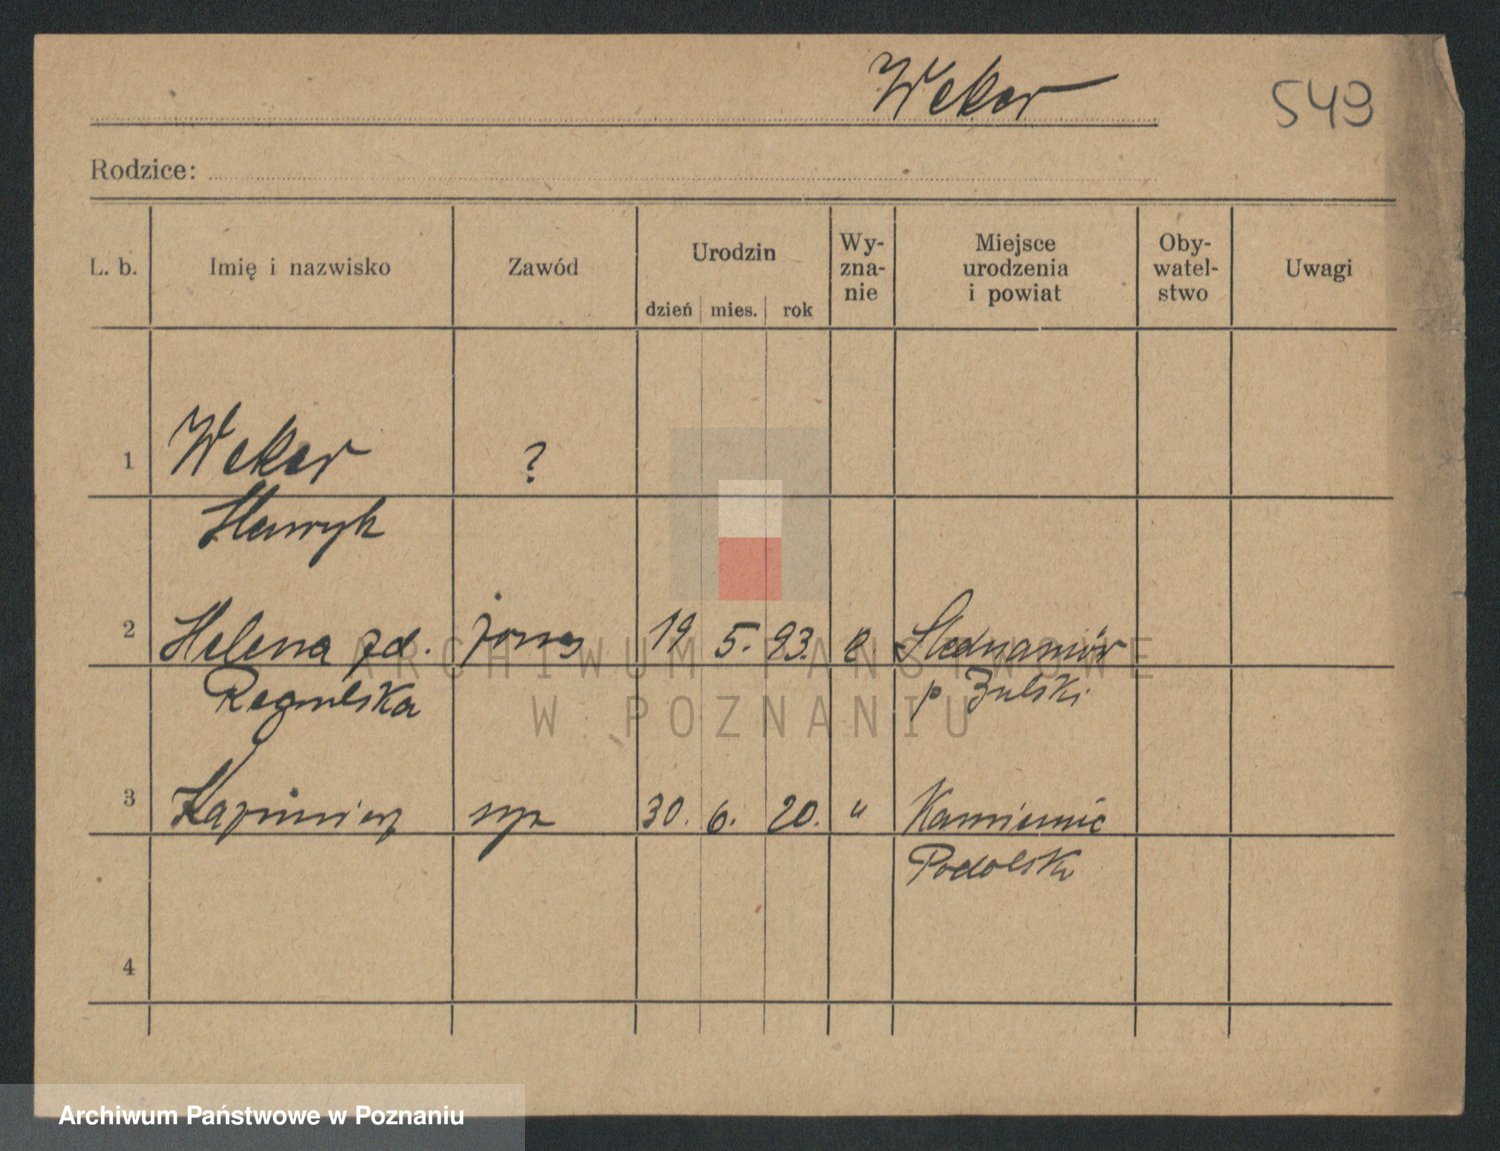 Weker
549
Rodzice:
L. b. Imię i nazwisko Zawód Urodzin Wy-zna-nie Miejsce urodzenia i powiat Oby-watel-stwo Uwagi
dzień mies. rok
1 Weker ?
Henryk
2 Helena zd. żona 19 5. 93. e
Regulska p
3 Kazimierz syn 30. 6. 20. " Kamieniec
Podolski
4
ARCHIWUM PAŃSTWOWE
W POZNANIU
Archiwum Państwowe w Poznaniu